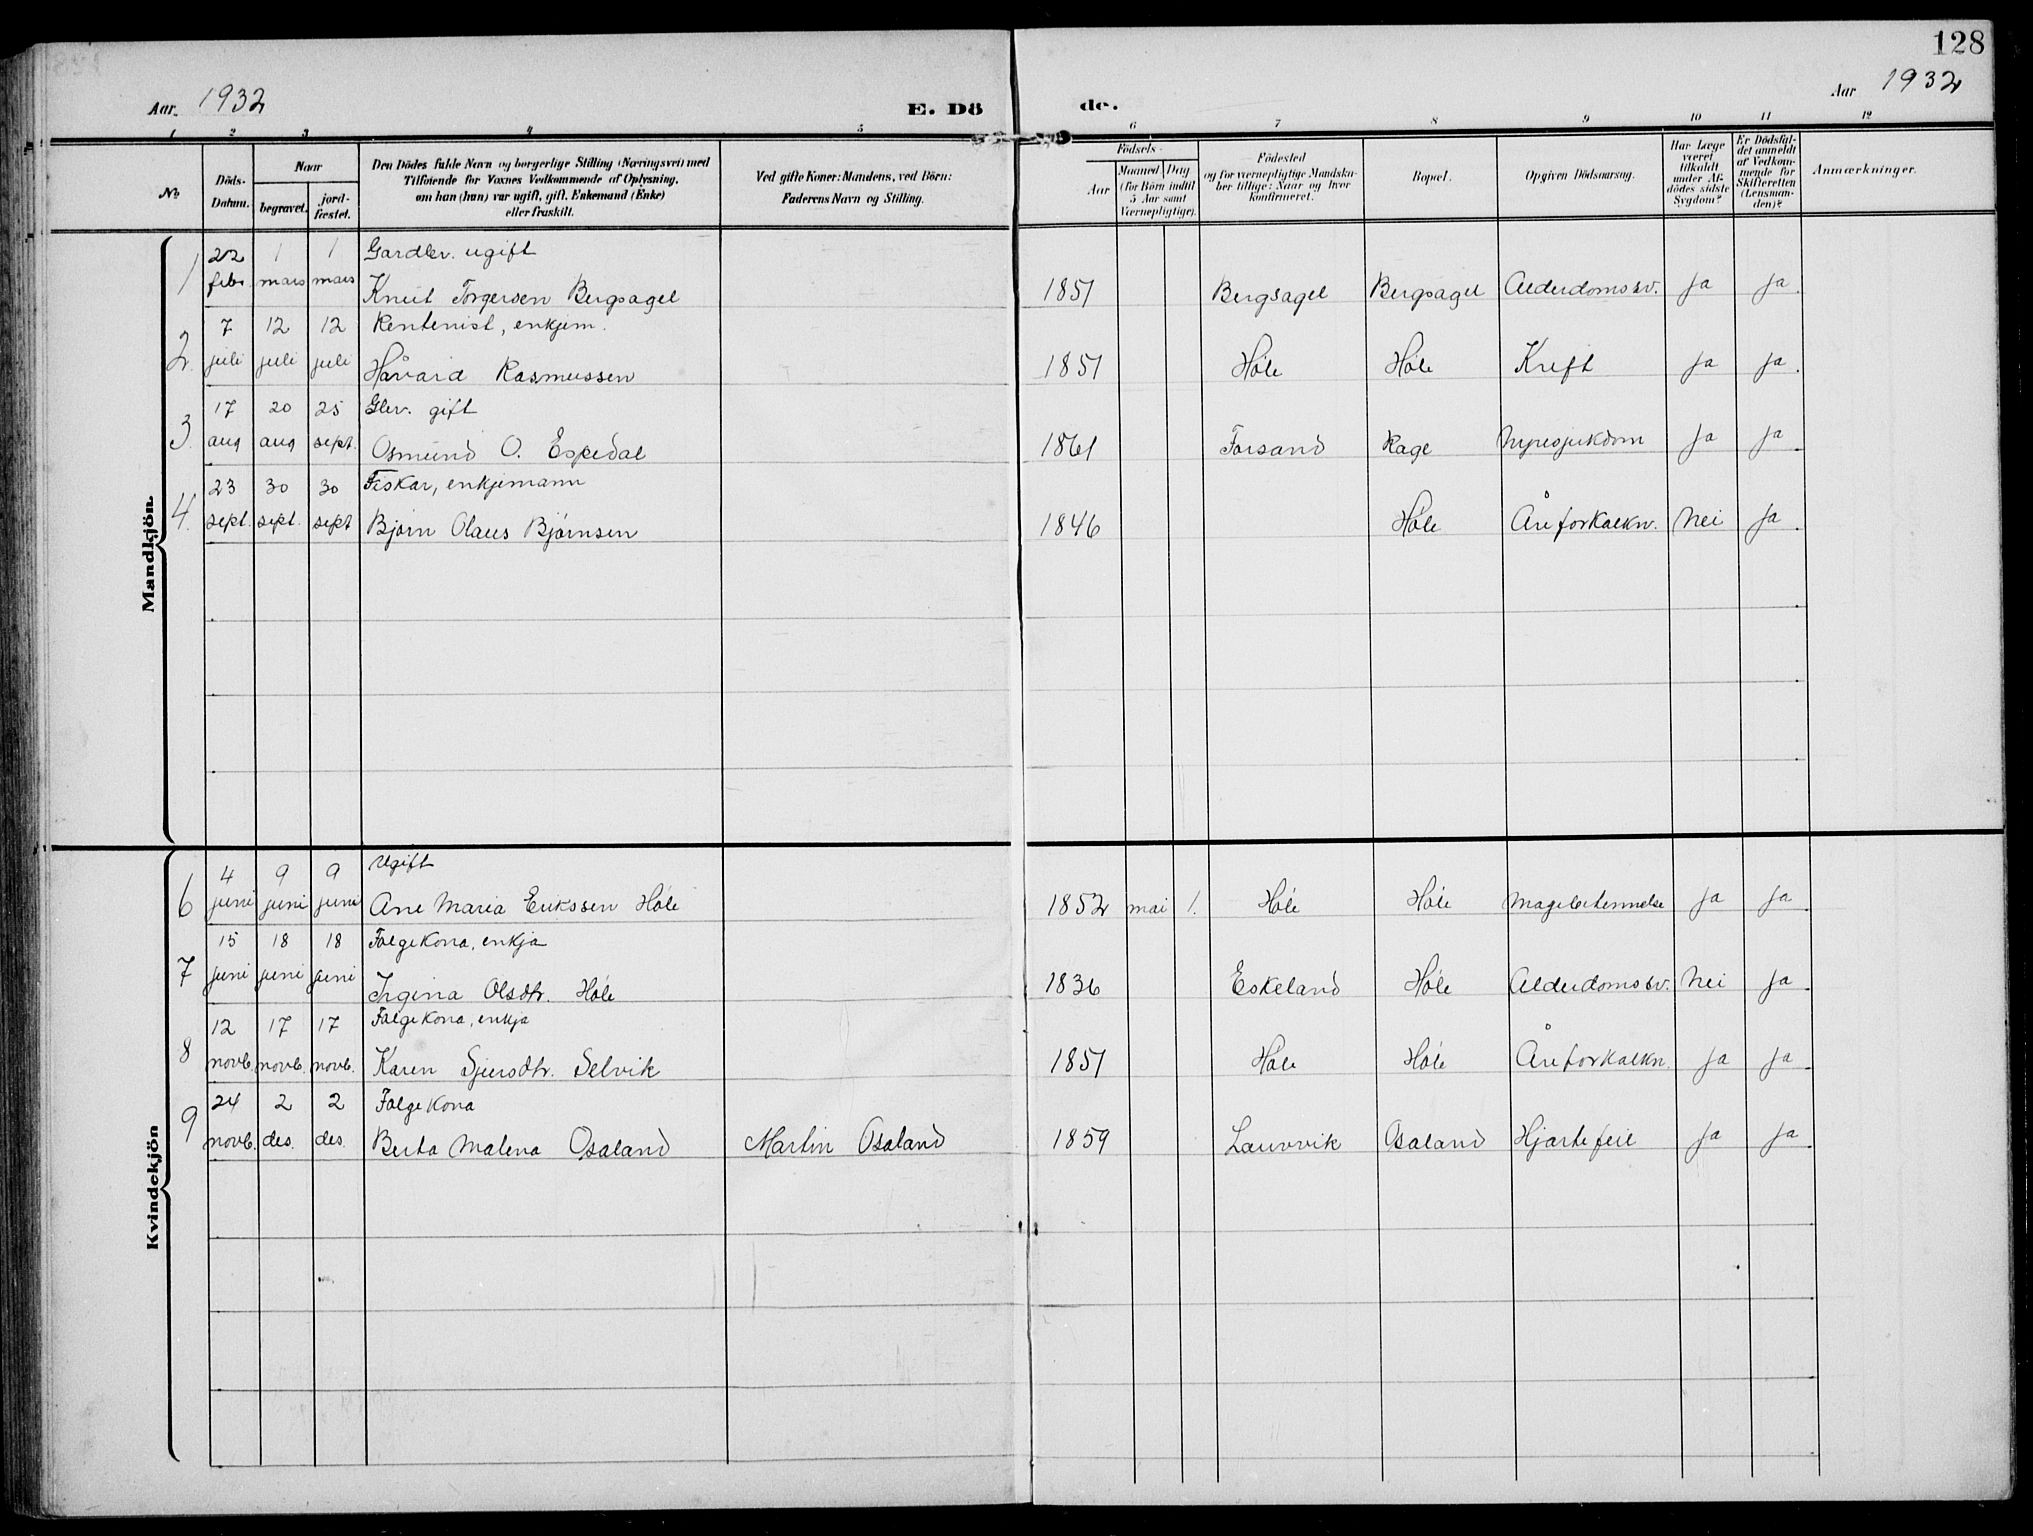 128
Aar. 1932
E. Dö
de.
Aar 1932
1 2 3 4 5 6 7 8 9 10 11 12
No.
Döds-
Datum.
Naar
begravet.
jord-
fæstet.
Den Dödes fulde Navn og borgerlige Stilling (Næringsvei) med
Tilföiende for Voxnes Vedkommende af Oplysning,
om han (hun) var ugift, gift, Enkemand (Enke)
eller fraskilt.
Ved gifte Koner: Mandens, ved Börn:
Faderens Navn og Stilling.
Födsels-
Aar
Maaned Dag
(for Börn indtil
5 Aar samt
Værnepligtige).
Födested
og for værnepligtige Mandska-
ber tillige: Naar og hvor
konfirmeret.
Bopæl.
Opgiven Dödsaarsag.
Har Læge
været
tilkaldt
under Af-
dödes sidste
Sygdom?
Er Dödsfal-
det anmeldt
af Vedkom-
mende for
Skifteretten
(Lensman-
den)?
Anmærkninger.
Mandkjön.
22 1 1 Gardbr. ugift
1 febr. mars mars Knut Torgersen Bergsagel 1851 Bergsagel Bergsagel Alderdomssv. Ja Ja.
7 12 12 Rentenist, enkjem.
2. juli juli juli Håvard Rasmussen 1851 Høle Høle Kreft Ja Ja.
17 20 25 Gbr. gift
3. aug aug sept. Osmund O. Espedal 1861 Forsand Rage Nyresjukdom Ja Ja
23 30 30 Fiskar, enkjemann
4. sept. sept. sept Bjørn Olaus Bjørnsen 1846 Høle Åreforkalkn. Nei Ja
Kvindekjön
4 9 9 Ugift
6 juni juni juni Ane Maria Erikssen Høle 1852 mai 1. Høle Høle Magebetennelse Ja Ja
15 18 18 Folgekona, enkja
7 juni juni juni Ingina Olsdtr. Høle 1836 Eskeland Høle Alderdomssv. Nei Ja
12 17 17 Folgekona, enkja
8 novb. novb. novb. Karen Sjursdtr. Selvik 1851 Høle Høle Åreforkalkn. Ja Ja
24 2 2 Folgekona
9 novb. des. des. Berta Malena Osaland Martin Osaland 1859 Lauvvik Osaland Hjartefeil Ja Ja